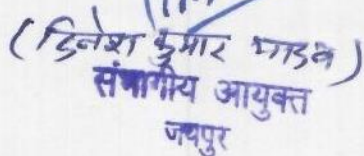 (दिनेश कुमार यादव)
संभागीय आयुक्त
जयपुर